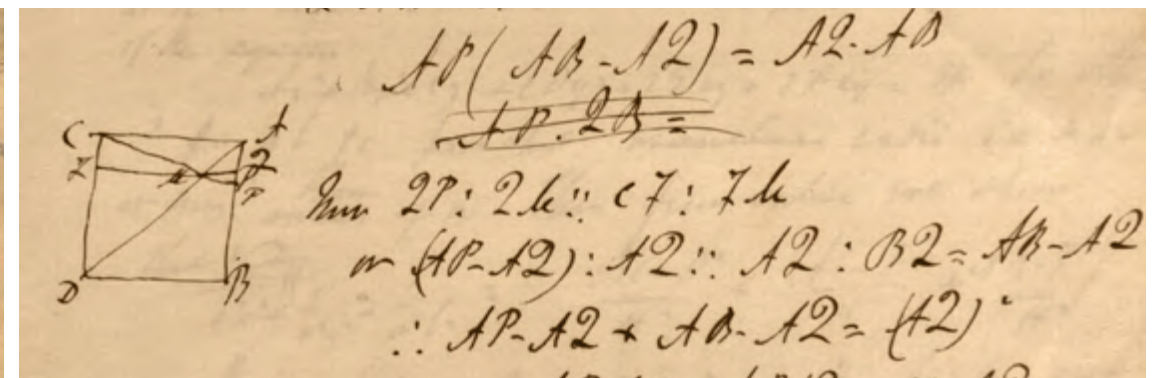 AP(AB-AQ) = AQ·AB
AP.QB =
C A
Z Q
P
D B
Now QP : Qk :: CZ : Zk
or (AP-AQ) : AQ :: AQ : BQ = AB-AQ
∴ AP-AQ × AB-AQ = (AQ)²